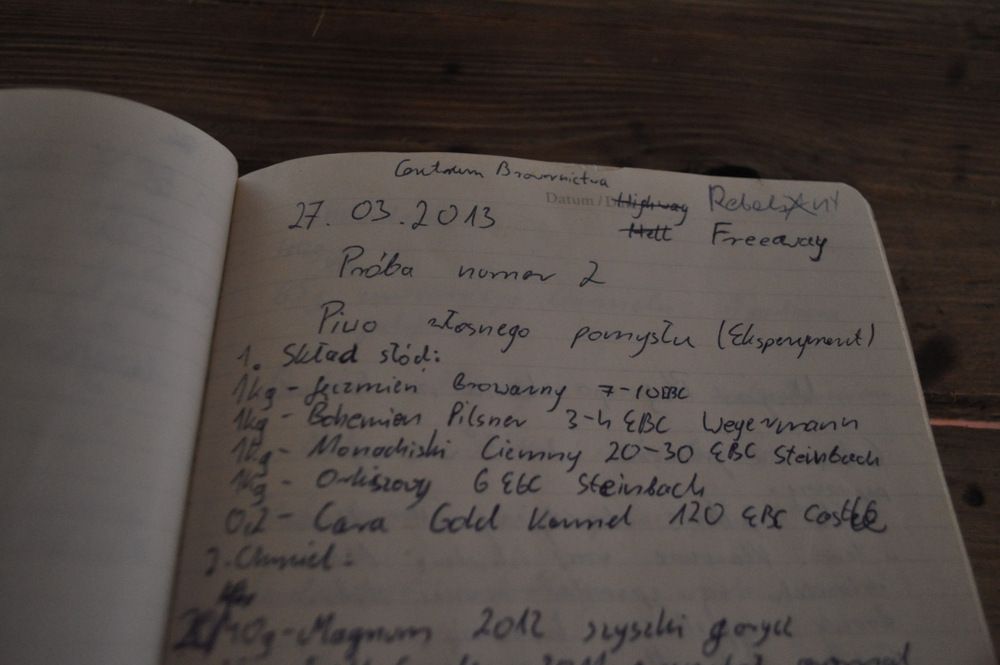 Centrum Browarnictwa
27. 03. 2013 Datum / Highway Rebeliant
Hell Freeway
Próba numer 2
Piwo własnego pomysłu (Eksperyment)
1. Skład słód:
1kg - Jęczmień Browarny 7-10EBC
1kg - Bohemian Pilsner 3-4 EBC Weyermann
1kg - Monachijski Ciemny 20-30 EBC Steinbach
1kg - Orkiszowy 6 EBC Steinbach
0,2 - Cara Gold Karmel 120 EBC Castle
2. Chmiel:
10g - Magnum 2012 szyszki gorycz